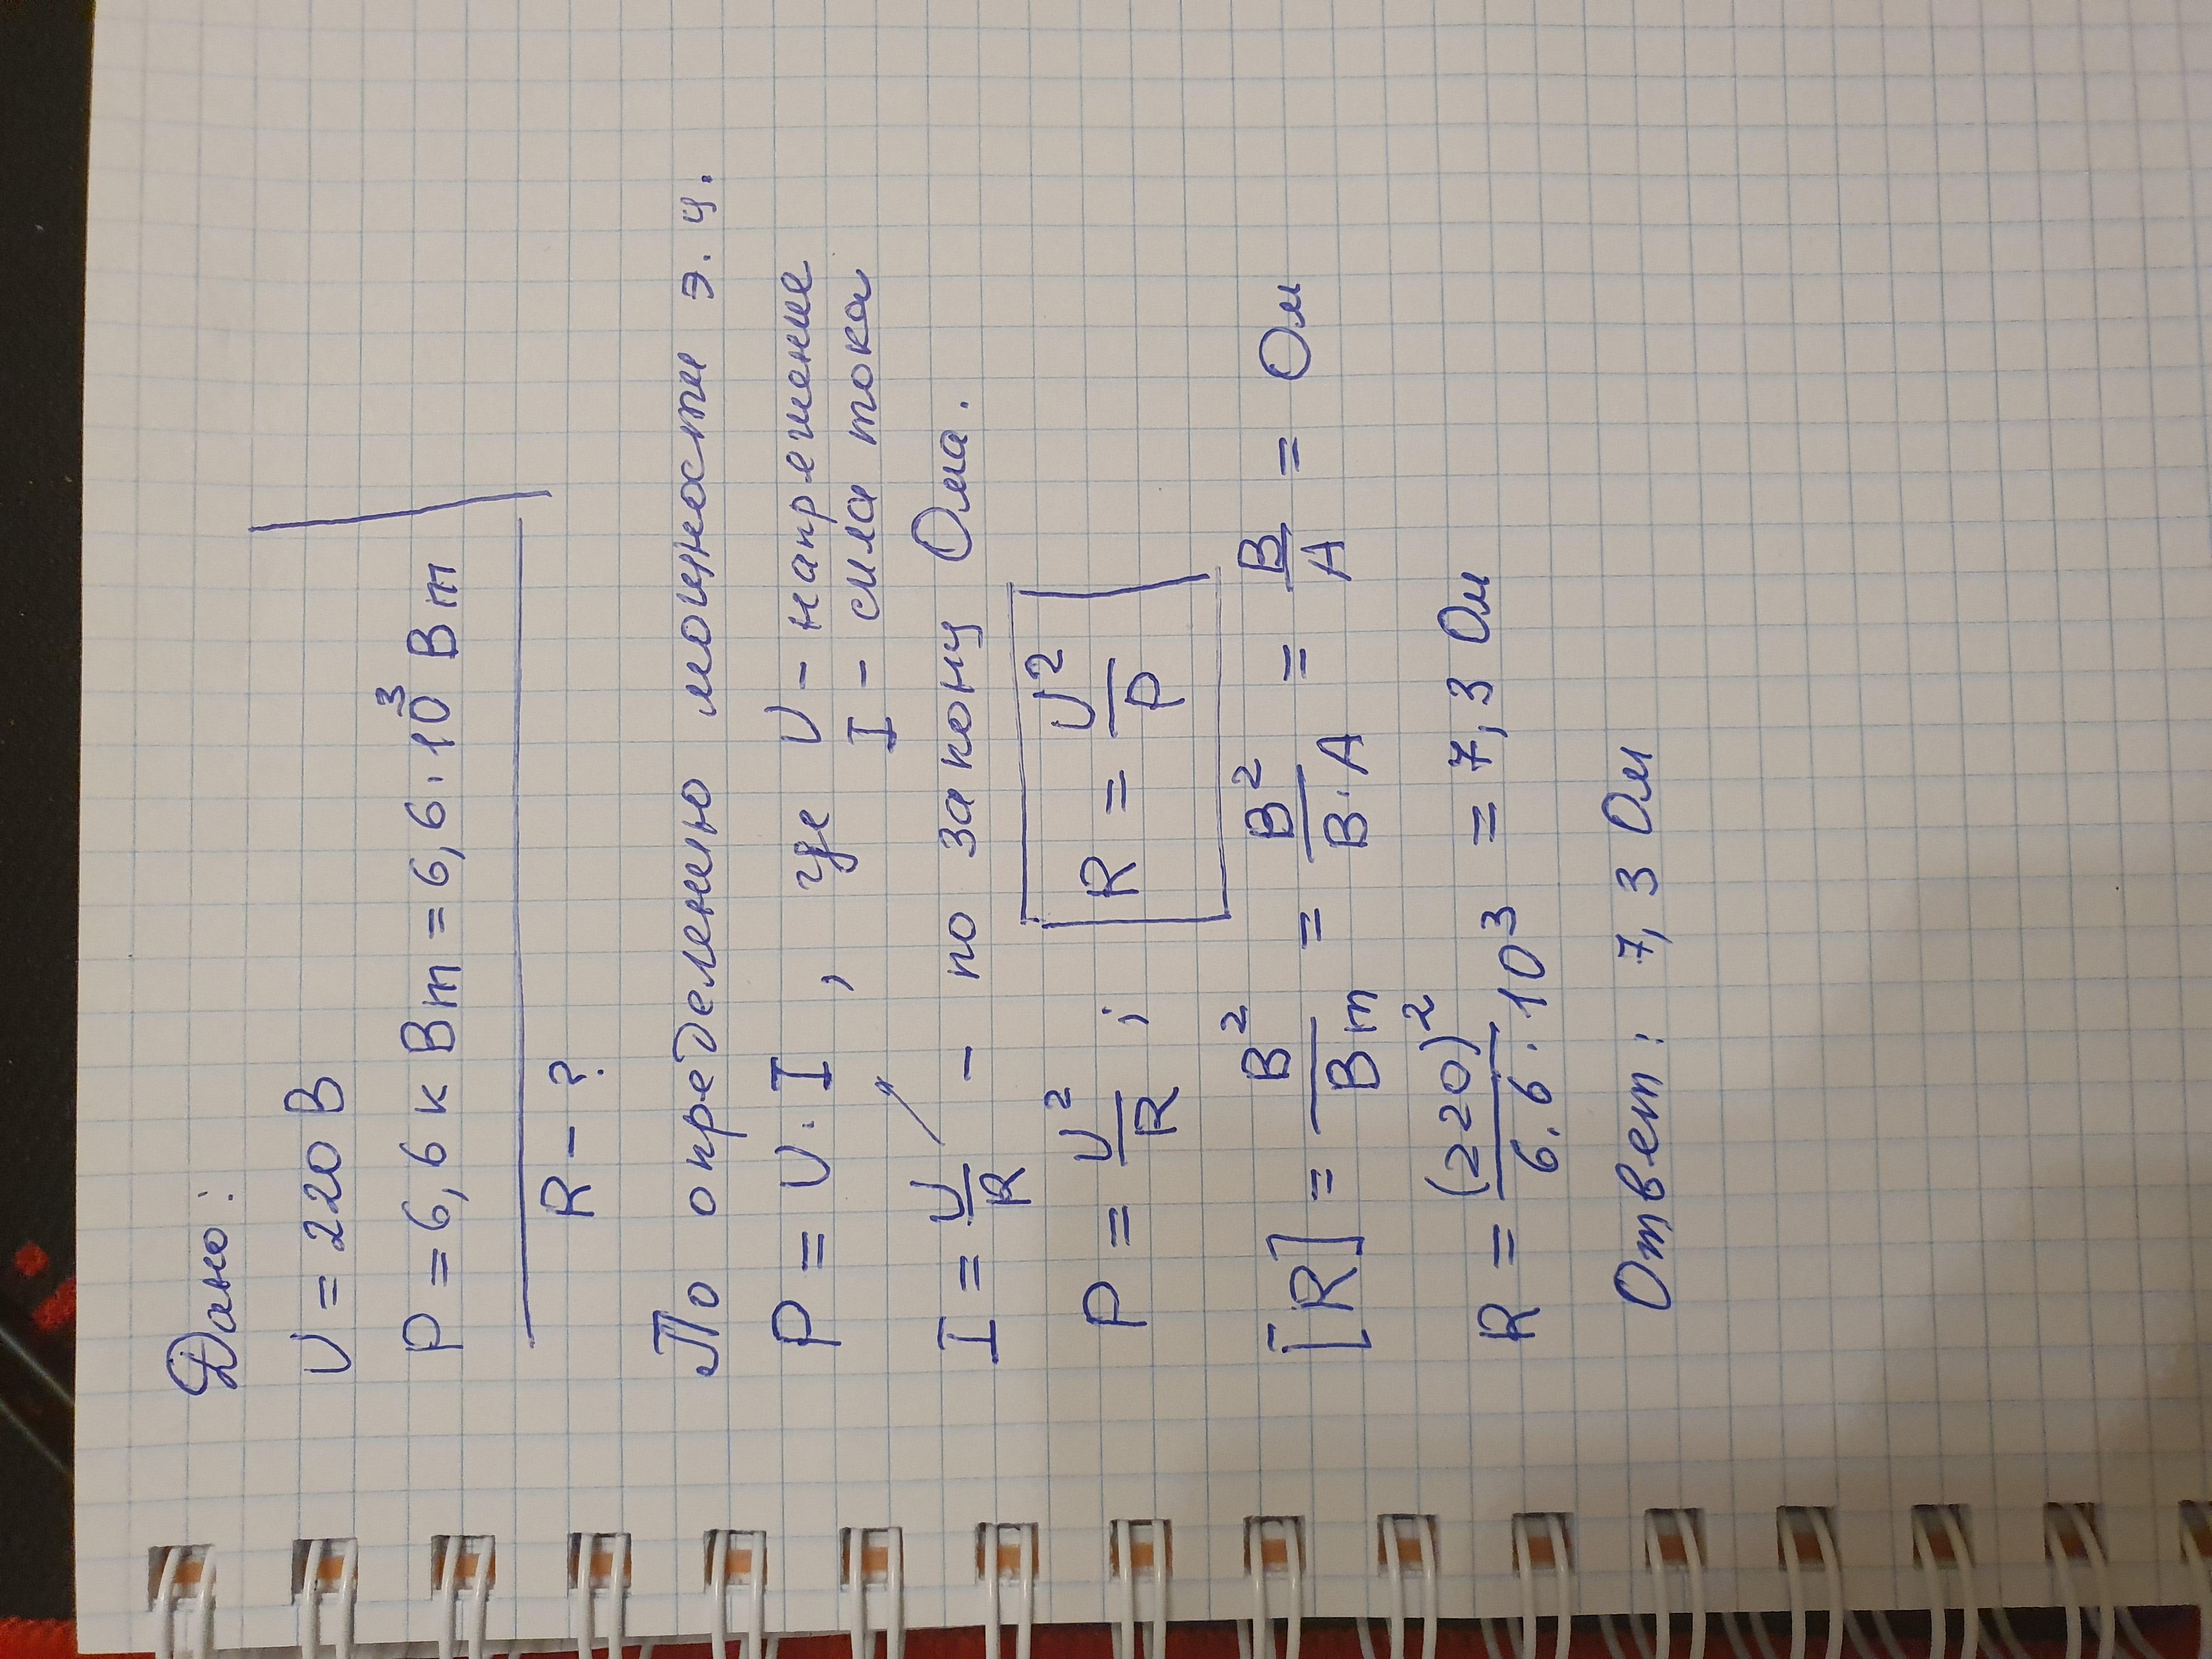 Дано:
U = 220 В
P = 6,6 кВт = 6,6·10³ Вт
R - ?
По определению мощности э.ч.
P = U·I , где U - напряжение
I - сила тока
I = U/R - по закону Ома.
P = U²/R ; R = U²/P
[R] = В²/Вт = В²/В·А = В/А = Ом
R = (220)²/6.6·10³ = 7,3 Ом
Ответ: 7,3 Ом